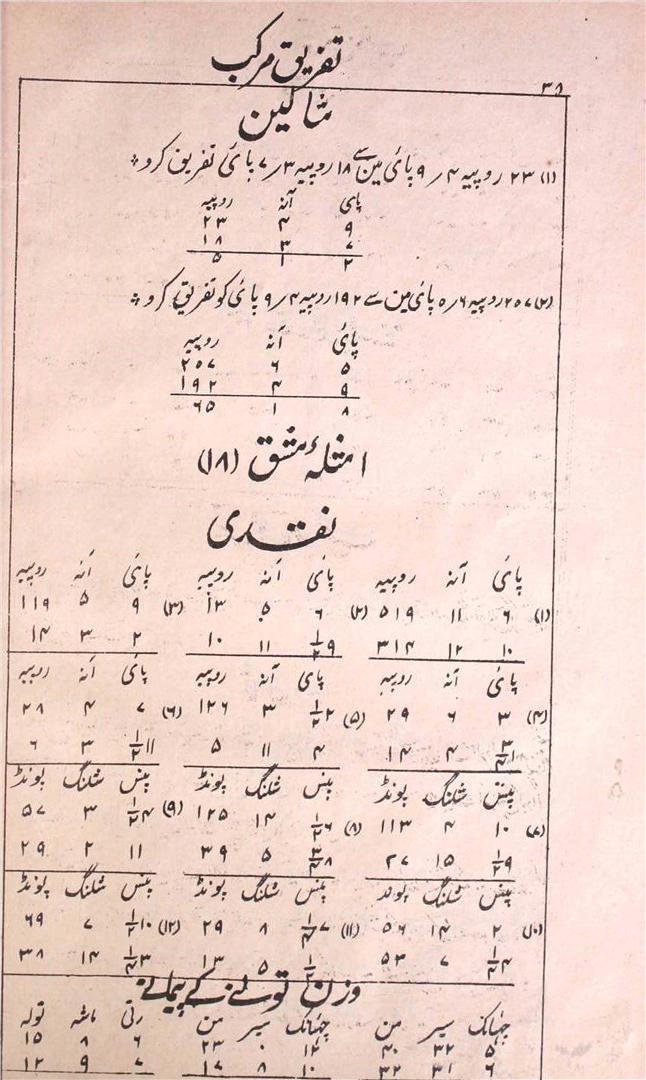 تفریق مرکب
۳۸
مثالین
(۱) ۲۳ روپیہ ۴ ؍ ۹ پائی مین سے ۱۸ روپیہ ۳ ؍ ۷ پائی تفریق کرو
پای آنہ روپیہ
۹ ۴ ۲۳
۷ ۳ ۱۸
۲ ۱ ۵
(۲) ۲۵۷ روپیہ ۶ ؍ ۵ پائی مین سے ۱۹۲ روپیہ ۴ ؍ ۹ پائی کو تفریق کرو
پائی آنہ روپیہ
۵ ۶ ۲۵۷
۹ ۴ ۱۹۲
۸ ۱ ۶۵
امثلہٴ مشق (۱۸)
نقدی
پائی آنہ روپیہ پائی آنہ روپیہ پائی آنہ روپیہ
(۱) ۶ ۱۱ ۵۱۹ (۲) ۶ ۵ ۱۳ (۳) ۹ ۵ ۱۱۹
۱۰ ۱۲ ۳۱۴ ۹ ۱/۲ ۱۱ ۱۰ ۲ ۳ ۱۴
پائی آنہ روپیہ پائی آنہ روپیہ پائی آنہ روپیہ
(۴) ۳ ۶ ۲۹ (۵) ۲ ۱/۲ ۳ ۱۲۶ (۶) ۷ ۴ ۲۸
۱ ۳/۴ ۴ ۱۴ ۴ ۱۱ ۵ ۱۱ ۱/۲ ۳ ۶
پنس شلنگ پونڈ پنس شلنگ پونڈ پنس شلنگ پونڈ
(۷) ۱۰ ۴ ۱۱۳ (۸) ۶ ۱/۲ ۱۴ ۱۲۵ (۹) ۴ ۱/۲ ۳ ۵۷
۹ ۱/۲ ۱۵ ۲۷ ۸ ۳/۴ ۵ ۳۹ ۱۱ ۲ ۲۹
پنس شلنگ پونڈ پنس شلنگ پونڈ پنس شلنگ پونڈ
(۱۰) ۲ ۱۴ ۵۶ (۱۱) ۷ ۱/۴ ۸ ۲۹ (۱۲) ۱۰ ۱/۲ ۷ ۶۹
۴ ۱/۴ ۷ ۵۳ ۱/۲ ۵ ۱۳ ۳ ۱/۴ ۱۴ ۳۸
وزن تولنے کے پیمانے
چھٹانک سیر من چھٹانک سیر من رتی ماشہ تولہ
۵ ۳۲ ۴۰ ۱۲ ۰ ۲۳ ۶ ۸ ۱۵
۶ ۳۱ ۳۲ ۱۰ ۸ ۱۷ ۷ ۹ ۱۲